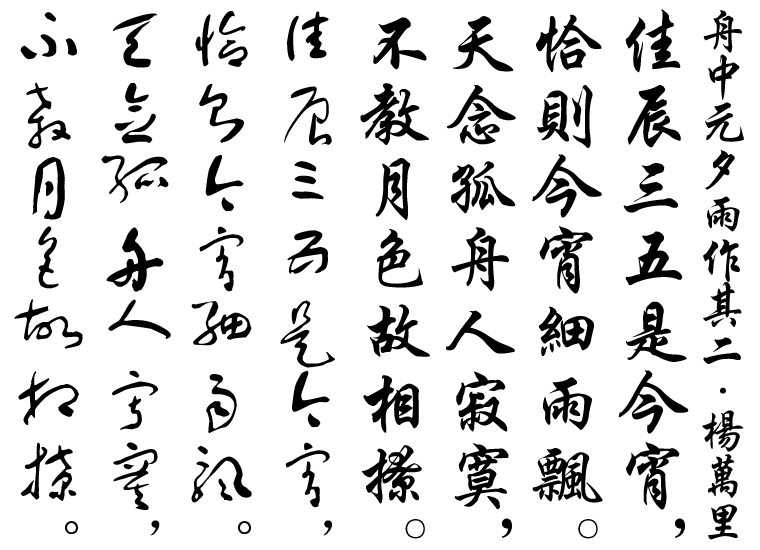 舟中元夕雨作其二·楊萬里
佳辰三五是今宵，
恰則今宵細雨飄。
天念孤舟人寂寞，
不教月色故相撩。
佳辰三五是今宵，
恰則今宵細雨飄。
天念孤舟人寂寞，
不教月色故相撩。